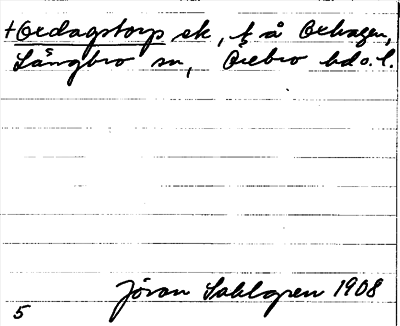 +Ordagstorp sk, t å Oxhagen,
Långbro sn, Örebro hd o. l.
Jöran Sahlgren 1908
5